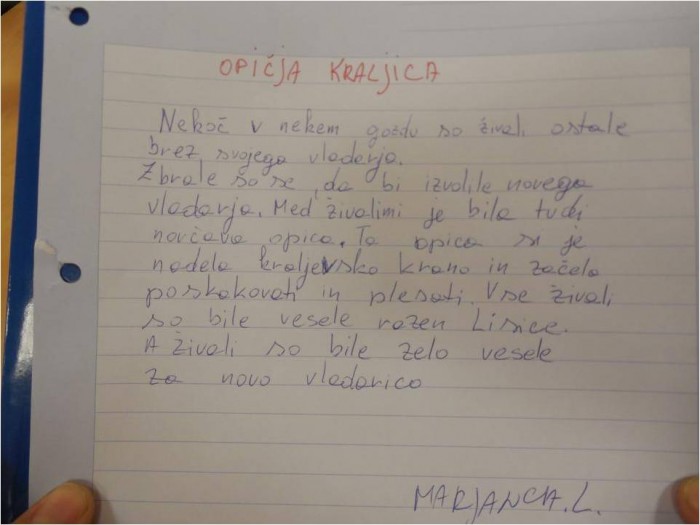 OPIČJA KRALJICA
Nekoč v nekem gozdu so živali ostale
brez svojega vladarja.
Zbrale so se, da bi izvolile novega
vladarja. Med živalimi je bila tudi
norčava opica. Ta opica si je
nadela kraljevsko krono in začela
poskakovati in plesati. Vse živali
so bile vesele razen Lisice.
A živali so bile zelo vesele
za novo vladarico
MARJANCA.L.